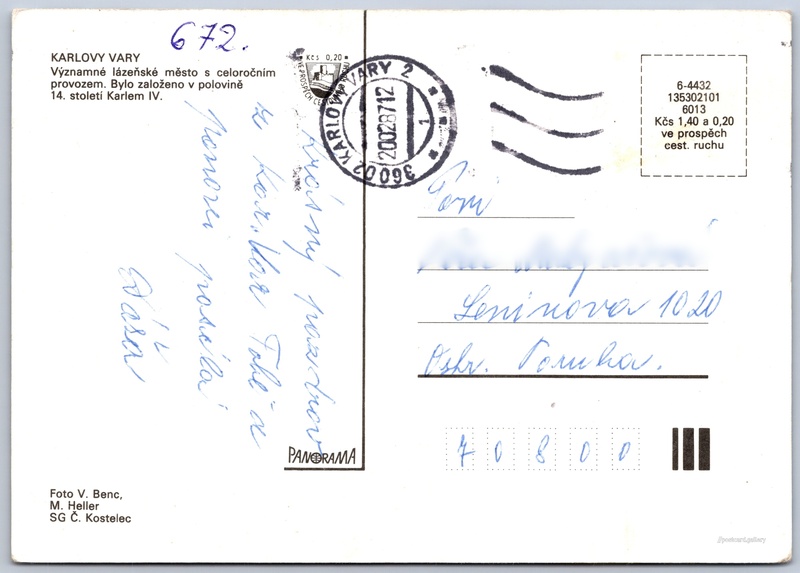 672.
KARLOVY VARY
Významné lázeňské město s celoročním
provozem. Bylo založeno v polovině
14. století Karlem IV.
Kčs 0,20
360 02 KARLOVY VARY 2
20028712
1
6-4432
135302101
6013
Kčs 1,40 a 0,20
ve prospěch
cest. ruchu
Krásný pozdrav
z Kar. Var Tobě a
posílá
Dáša
Paní
Leninova 1020
Ostr. Poruba.
70800
PANORAMA
Foto V. Benc,
M. Heller
SG Č. Kostelec
@postcard.gallery